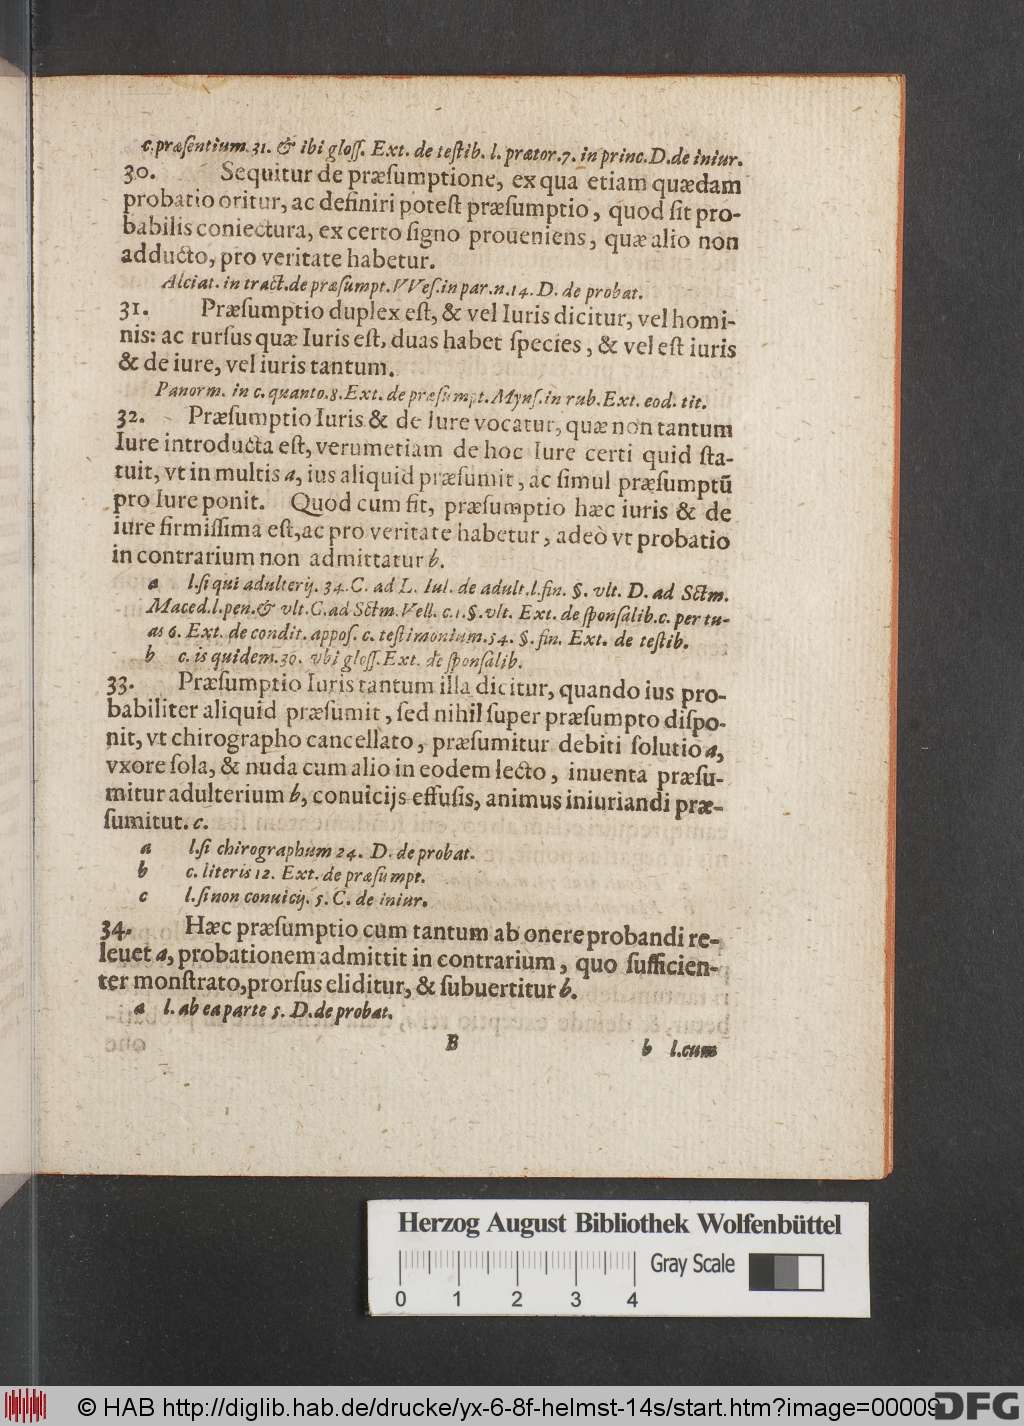 c. præsentium. 31. & ibi gloss. Ext. de testib. l. prætor. 7. in princ. D. de iniur.
30. Sequitur de præsumptione, ex qua etiam quædam
probatio oritur, ac definiri potest præsumptio, quod sit pro-
babilis coniectura, ex certo signo proueniens, quæ alio non
adducto, pro veritate habetur.
Alciat. in tract. de præsumpt. VVes. in par. n. 14. D. de probat.
31. Præsumptio duplex est, & vel Iuris dicitur, vel homi-
nis: ac rursus quæ Iuris est, duas habet species, & vel est iuris
& de iure, vel iuris tantum.
Panorm. in c. quanto. 8. Ext. de præsumpt. Myns. in rub. Ext. eod. tit.
32. Præsumptio Iuris & de Iure vocatur, quæ non tantum
Iure introducta est, verumetiam de hoc Iure certi quid sta-
tuit, vt in multis a, ius aliquid præsumit, ac simul præsumptū
pro Iure ponit. Quod cum fit, præsumptio hæc iuris & de
iure firmissima est, ac pro veritate habetur, adeò vt probatio
in contrarium non admittatur b.
a l. si qui adulterij. 34. C. ad L. Iul. de adult. l. fin. §. vlt. D. ad Sctm.
Maced. l. pen. & vlt. C. ad Sctm. Vell. c. 1. §. vlt. Ext. de sponsalib. c. per tu-
as 6. Ext. de condit. appos. c. testimonium. 54. §. fin. Ext. de testib.
b c. is quidem. 30. vbi gloss. Ext. de sponsalib.
33. Præsumptio Iuris tantum illa dicitur, quando ius pro-
babiliter aliquid præsumit, sed nihil super præsumpto dispo-
nit, vt chirographo cancellato, præsumitur debiti solutio a,
vxore sola, & nuda cum alio in eodem lecto, inuenta præsu-
mitur adulterium b, conuicijs effusis, animus iniuriandi præ-
sumitut. c.
a l. si chirographum 24. D. de probat.
b c. literis 12. Ext. de præsumpt.
c l. si non conuicij. 5. C. de iniur.
34. Hæc præsumptio cum tantum ab onere probandi re-
leuet a, probationem admittit in contrarium, quo sufficien-
ter monstrato, prorsus eliditur, & subuertitur b.
a l. ab ea parte 5. D. de probat.
B b l. cum
Herzog August Bibliothek Wolfenbüttel
Gray Scale
0 1 2 3 4
© HAB http://diglib.hab.de/drucke/yx-6-8f-helmst-14s/start.htm?image=00009
DFG